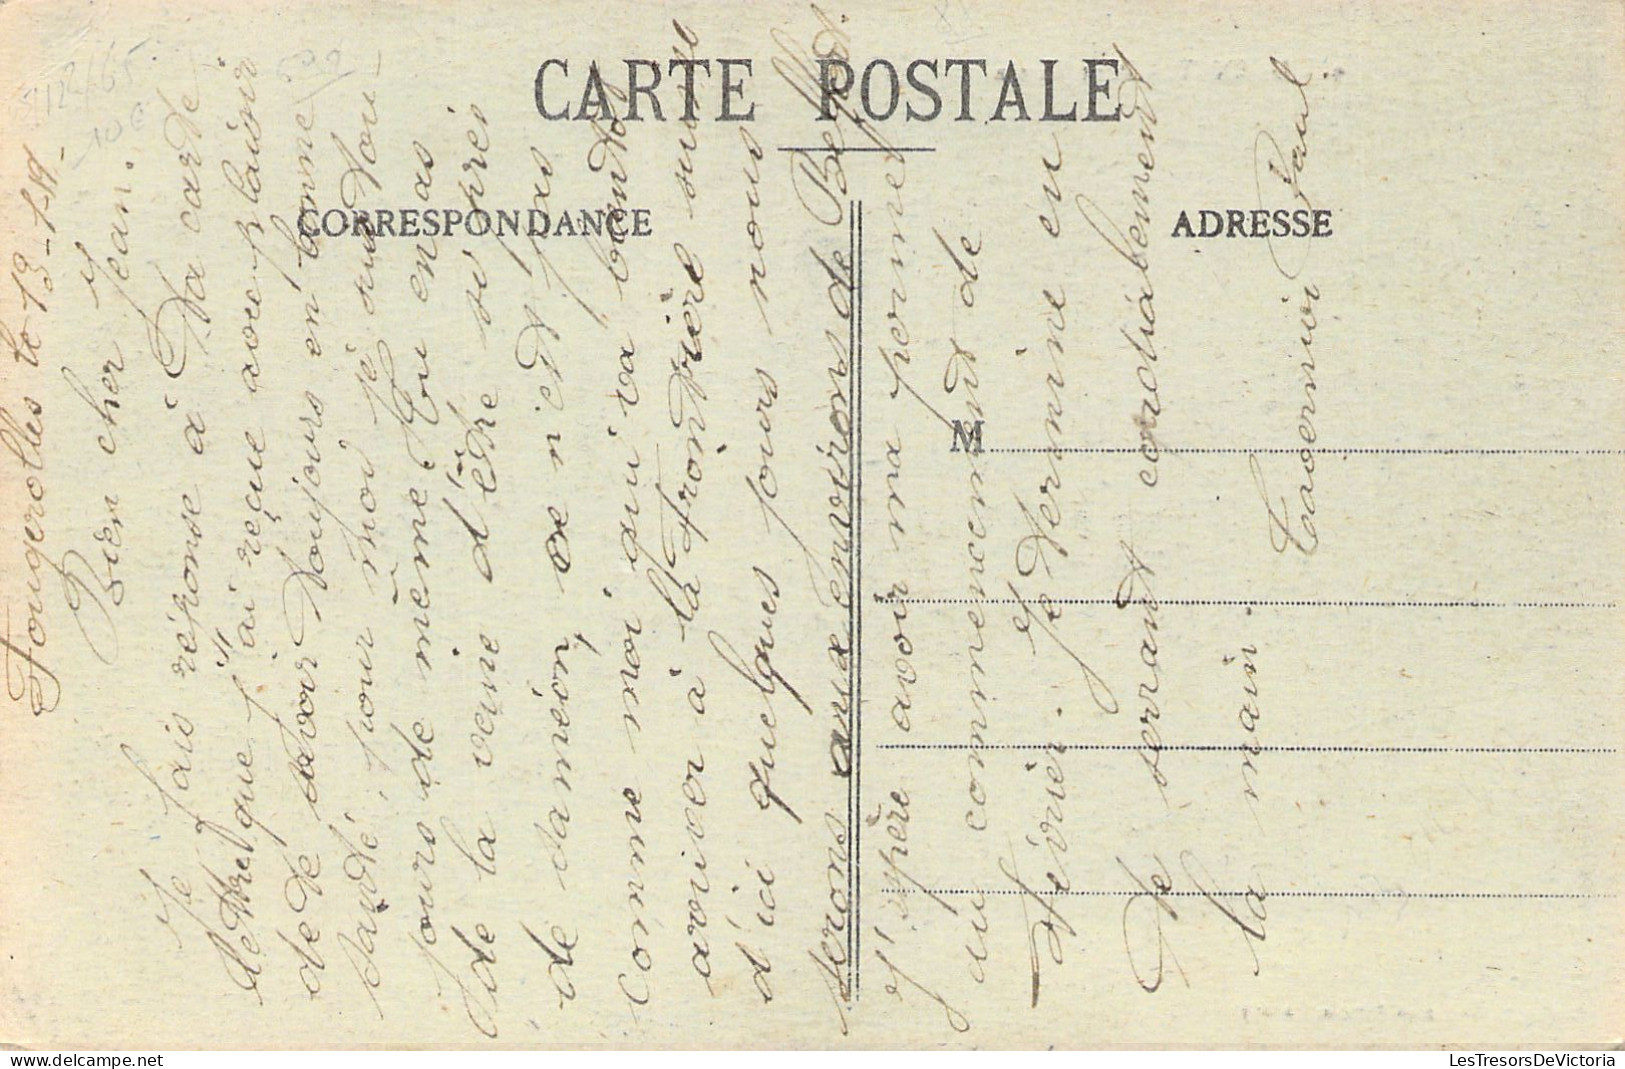 CARTE POSTALE
CORRESPONDANCE
ADRESSE
M
Fougerolles le 13-1-19-
Bien cher Jean.
Je fais réponse à Ta carte
lettre que j'ai reçue avec plaisir
de te savoir toujours en bonne
santé, pour moi je suis tou-
jours de même. Tu en as
de la veine d'être si près
de ta maison, ce n'est pas
comme moi qui va bientôt
arriver à la frontière suisse
d'ici quelques jours nous
serons aux environs de Belfort.
J'espère avoir ma perme
au commencement de
février. Je termine en
te serrant cordialement
la main.
Tavernier Paul
LesTresorsDeVictoria
delcampe.net